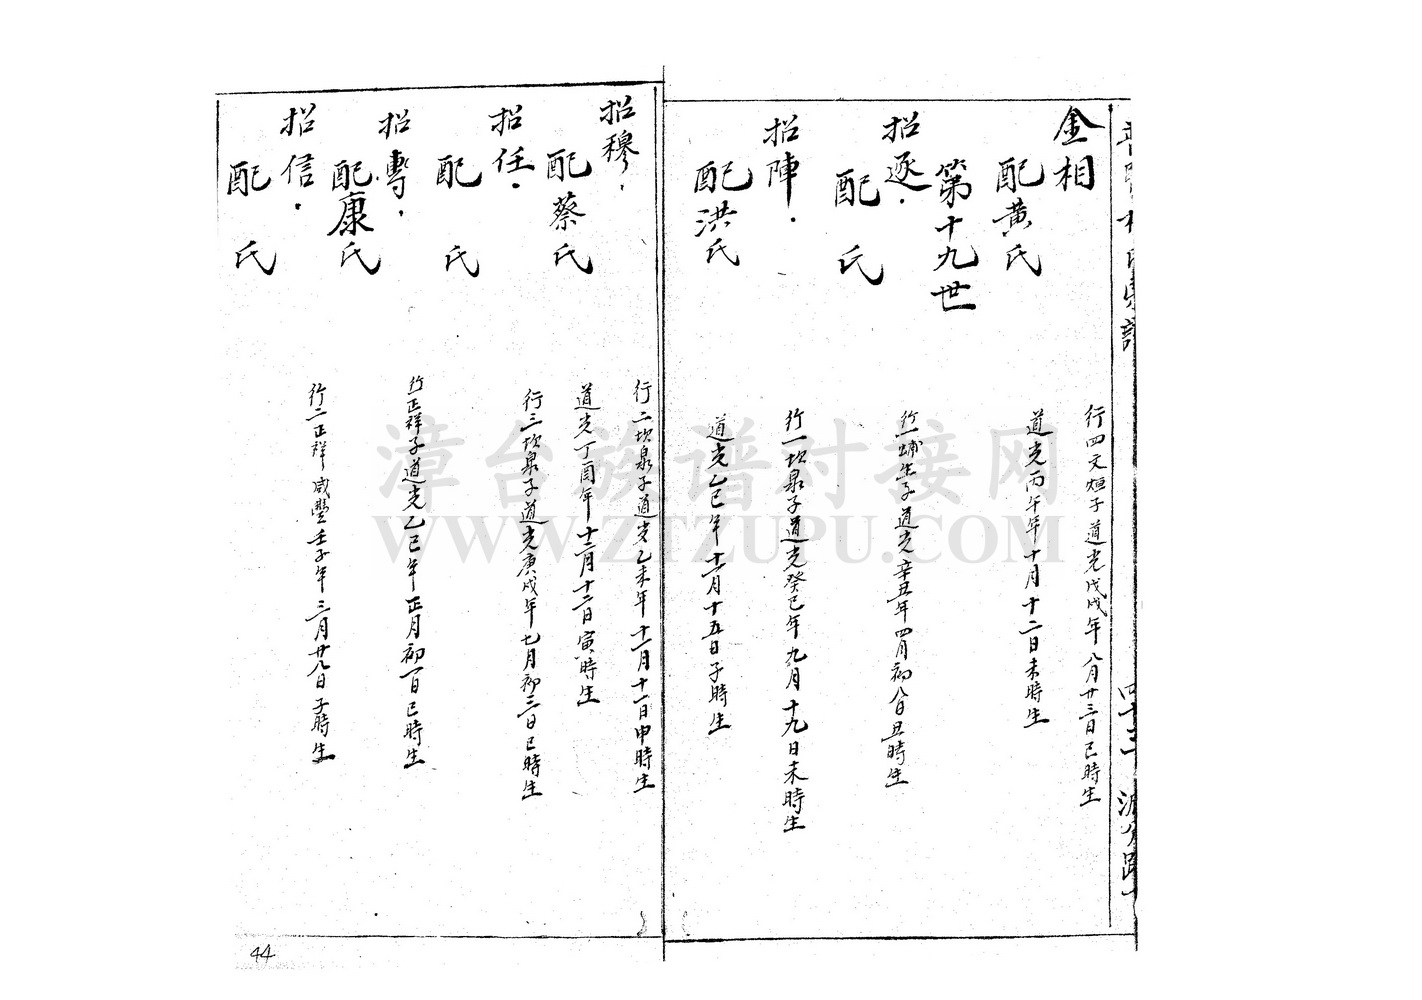 金相
行四文烜子道光戊戌年八月廿三日巳時生
配黄氏
道光丙午年十月十二日未時生
第十九世
招逐
行一 生子道光辛丑年四月初八日丑時生
配 氏
招陣
行一坎泉子道光癸巳年九月十九日未時生
配洪氏
道光乙巳年十二月十五日子時生
招穆
行二坎泉子道光乙未年十一月十一日申時生
配蔡氏
道光丁酉年十二月十二日寅時生
招任
行三坎泉子道光庚戌年七月初三日巳時生
配 氏
招
行 正祥子道光乙巳年正月初一日巳時生
配康氏
招信
行二正祥咸豐壬子年三月廿八日子時生
配 氏
44
漳台族谱对接网
WWW.ZTZUPU.COM